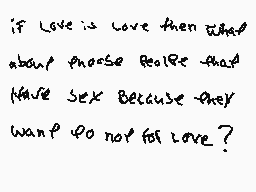 if Love is Love then what
about thoose people that
Have sex Because they
want to not for Love?